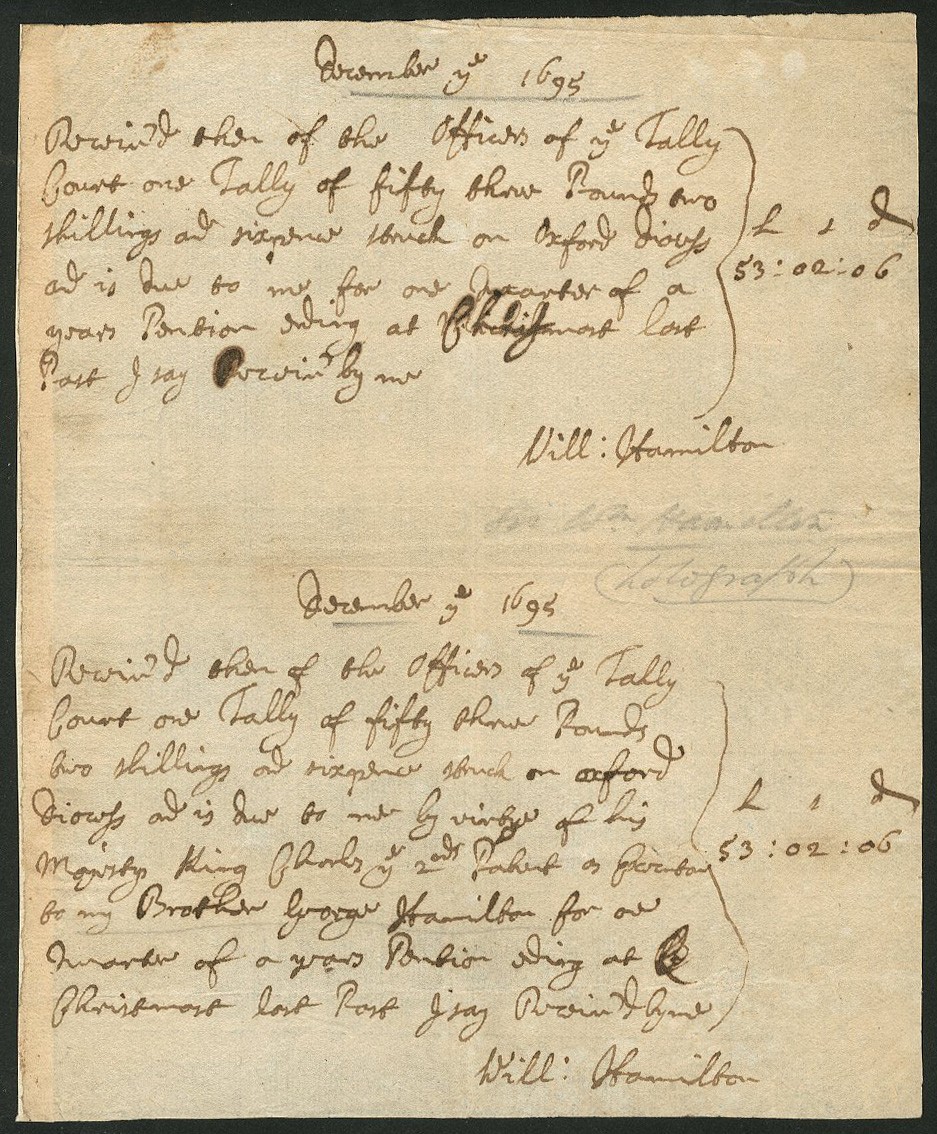 December ye 1695
Receiu'd then of the Officers of ye Tally
Court one Tally of fifty three Pounds two
shillings ad sixpence struck on Oxford diocess
ad is due to me for one Quarter of a
years Pention ending at Christmast last
Past I say Receiu'd by me
L s d
53 : 02 : 06
Will : Hamilton
Sir Wm Hamilton
(holograph)
December ye 1695
Receiu'd then of the Officers of ye Tally
Court one Tally of fifty three Pounds
two shillings ad sixpence struck on oxford
diocess ad is due to me by virtye of his
Majestys King Charles ye 2nds Patent as Executor
to my Brother George Hamilton for one
Quarter of a years Pention ending at
Christmast last Past I say Receiu'd by me
L s d
53 : 02 : 06
Will : Hamilton